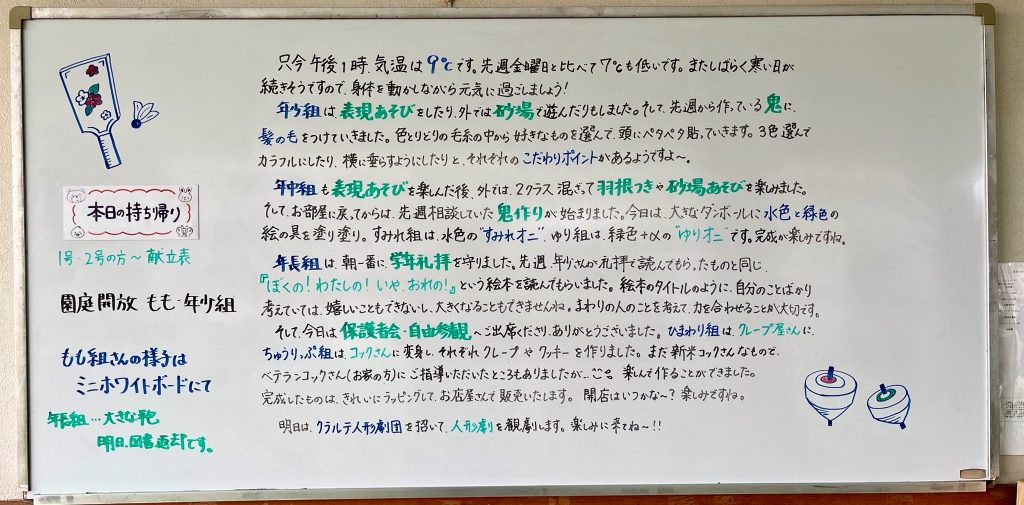 本日の持ち帰り
1号・2号の方〜献立表
園庭開放 もも・年少組
もも組さんの様子は
ミニホワイトボードにて
年長組…大きな靴
明日、図書返却です。
只今 午後1時、気温は9℃です。先週金曜日と比べて7℃も低いです。またしばらく寒い日が
続きそうですので、身体を動かしながら元気に過ごしましょう!
年少組は、表現あそびをしたり、外では砂場で遊んだりもしました。そして、先週から作っている鬼に、
髪の毛をつけていきました。色とりどりの毛糸の中から好きなものを選んで、頭にペタペタ貼っていきます。3色選んで
カラフルにしたり、横に垂らすようにしたりと、それぞれのこだわりポイントがあるようですよ〜。
年中組も表現あそびを楽しんだ後、外では、2クラス混ざって羽根つきや砂場あそびを楽しみました。
そして、お部屋に戻ってからは、先週相談していた鬼作りが始まりました。今日は、大きなダンボールに水色と緑色の
絵の具を塗り塗り。すみれ組は、水色の"すみれオニ"、ゆり組は、緑色+αの"ゆりオニ"です。完成が楽しみですね。
年長組は、朝一番に、学年礼拝を守りました。先週、年少さんが礼拝で読んでもらったものと同じ、
『ぼくの!わたしの!いや、おれの!』という絵本を読んてもらいました。絵本のタイトルのように、自分のことばかり
考えていては、嬉しいこともできないし、大きくなることもできませんね。まわりの人のことを考えて、力を合わせることが大切です。
そして、今日は保護者会・自由参観へご出席くださり、ありがとうございました。ひまわり組は、クレープ屋さんに、
ちゅうりっぷ組は、コックさんに変身し、それぞれクレープやクッキーを作りました。まだ新米コックさんなもので、
ベテランコックさん(お家の方)にご指導いただいたところもありましたが…楽しんで作ることができました。
完成したものは、きれいにラッピングして、お店屋さんで販売いたします。開店はいつかな〜?楽しみですね。
明日は、クラルテ人形劇団を招いて、人形劇を観劇します。楽しみに来てね〜!!